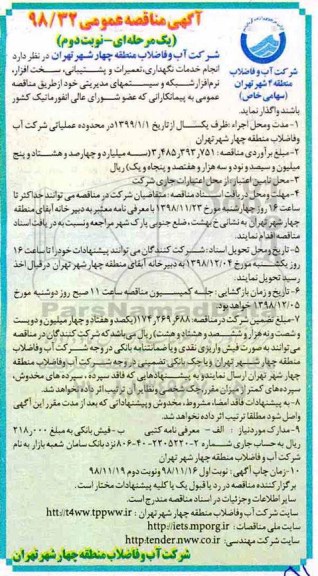 آگهی مناقصه عمومی ۹۸/۳۲
(یک مرحله‌ای-نوبت دوم)
شرکت آب و فاضلاب
منطقه ۴ شهر تهران
(سهامی خاص)
شرکت آب و فاضلاب منطقه چهار شهر تهران در نظر دارد
انجام خدمات نگهداری، تعمیرات و پشتیبانی، سخت افزار،
نرم افزار شبکه و سیستمهای مدیریتی خود از طریق مناقصه
عمومی به پیمانکارانی که عضو شورای عالی انفورماتیک کشور
باشند واگذار نماید.
۱-مدت و محل اجراء: ظرف یکسال از تاریخ ۱۳۹۹/۱/۱ در محدوده عملیاتی شرکت آب
و فاضلاب منطقه چهار شهر تهران
۲-مبلغ برآوردی مناقصه: ۳,۴۸۵,۳۹۲,۷۵۱ (سه میلیارد و چهارصد و هشتاد و پنج
میلیون و سیصد و نود و دو هزار و هفتصد و پنجاه و یک) ریال
۳-محل تامین اعتبار: از محل اعتبارات جاری شرکت
۴-مهلت و محل دریافت اسناد مناقصه: متقاضیان شرکت در مناقصه می توانند حداکثر تا
ساعت ۱۶ روز چهارشنبه مورخ ۱۳۹۸/۱۱/۲۳ با معرفی نامه معتبر به دبیرخانه آبفای منطقه
چهار شهر تهران به نشانی خ بهشت، ضلع جنوبی پارک شهر مراجعه و نسبت به دریافت اسناد
مناقصه اقدام نمایند.
۵-تاریخ و محل تحویل اسناد: شرکت کنندگان می توانند پیشنهادات خود را تا ساعت ۱۶
روز یکشنبه مورخ ۱۳۹۸/۱۲/۰۴ به دبیرخانه آبفای منطقه چهار شهر تهران در قبال اخذ
رسید تحویل نمایند.
۶-تاریخ و زمان بازگشایی: جلسه کمیسیون مناقصه ساعت ۱۱ صبح روز دوشنبه مورخ
۱۳۹۸/۱۲/۰۵ خواهد بود.
۷-مبلغ تضمین شرکت در مناقصه: ۱۷۴,۲۶۹,۶۸۸ (یکصد و هفتاد و چهار میلیون و دویست
و شصت و نه هزار و ششصد و هشتاد و هشت) ریال می باشد که شرکت کنندگان در مناقصه
می توانند به صورت فیش واریزی نقدی و یا ضمانتنامه بانکی در وجه شرکت آب و فاضلاب
منطقه چهار شهر تهران و یا چک بانکی تضمینی در وجه شرکت آب و فاضلاب منطقه
چهار شهر تهران ارسال نمایند و به پیشنهادهایی که فاقد سپرده، سپرده های مخدوش،
سپرده های کمتر از میزان مقرر، چک شخصی و نظایر آن ترتیب اثر داده نخواهد شد.
۸-به پیشنهادات فاقد امضاء، مشروط، مخدوش و پیشنهاداتی که بعد از مدت مقرر این آگهی
واصل شود مطلقا ترتیب اثر داده نخواهد شد.
۹-مدارک مورد نیاز: الف- معرفی نامه کتبی ب- فیش بانکی به مبلغ ۲۱۸,۰۰۰
ریال به حساب جاری شماره نزد بانک سامان شعبه بازار به نام
شرکت آب و فاضلاب منطقه چهار شهر تهران
۱۰-زمان چاپ آگهی: نوبت اول ۹۸/۱۱/۱۶ و نوبت دوم ۹۸/۱۱/۱۹
برگزار کننده مناقصه در رد یا قبول یک یا کلیه پیشنهادات مختار است.
سایر اطلاعات و جزئیات در اسناد مناقصه مندرج است.
سایت شرکت آب و فاضلاب منطقه چهار شهر تهران: http://t4ww.tppww.ir
سایت ملی مناقصات: http://iets.mporg.ir
سایت شرکت مهندسی: http:tender.nww.co.ir
شرکت آب و فاضلاب منطقه چهار شهر تهران